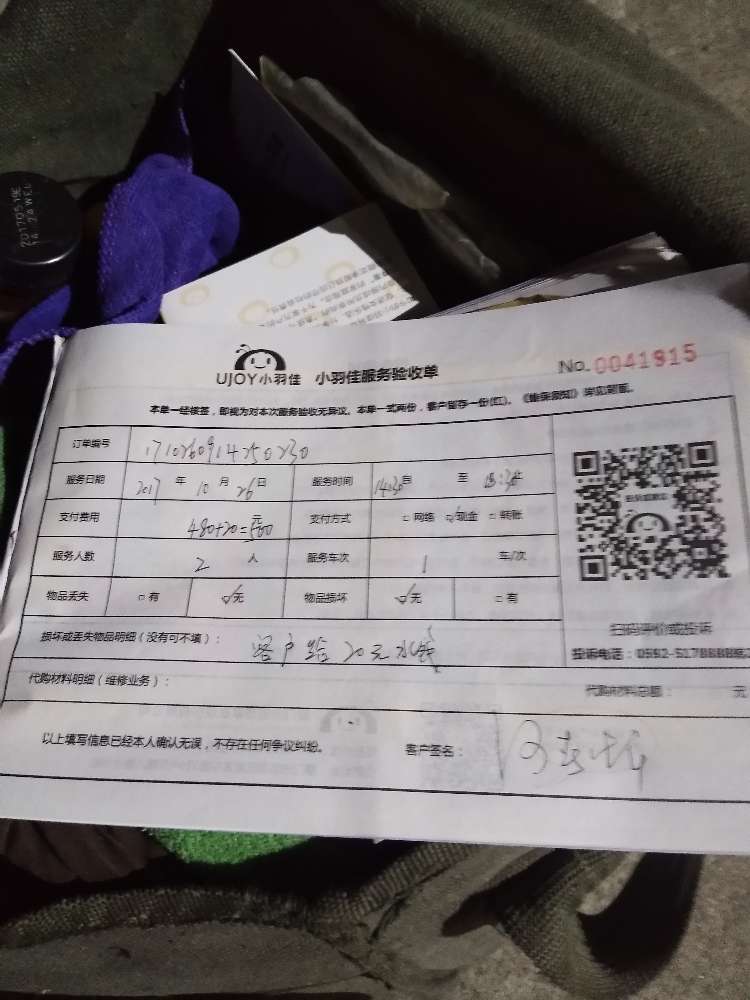 20170519E
UJOY小羽佳 小羽佳服务验收单 No.0041915
本单一经核签，即视为对本次服务验收无异议。本单一式两份，客户留存一份(红)。《维保须知》详见背面。
订单编号 1710260914250230
服务日期 2017 年 10 月 26 日 服务时间 14:30 自 至
支付费用 480+20=500元 支付方式 □ 网络 ☑ 现金 □ 转账
服务人数 2 人 服务车次 1 车/次
物品丢失 □ 有 ☑ 无 物品损坏 ☑ 无 □ 有
扫码评价或投诉
损坏或丢失物品明细（没有可不填）： 客户给20元水钱
投诉电话：0592-5178888
代购材料明细（维修业务）： 代购材料总额： 元
以上填写信息已经本人确认无误，不存在任何争议纠纷。 客户签名：